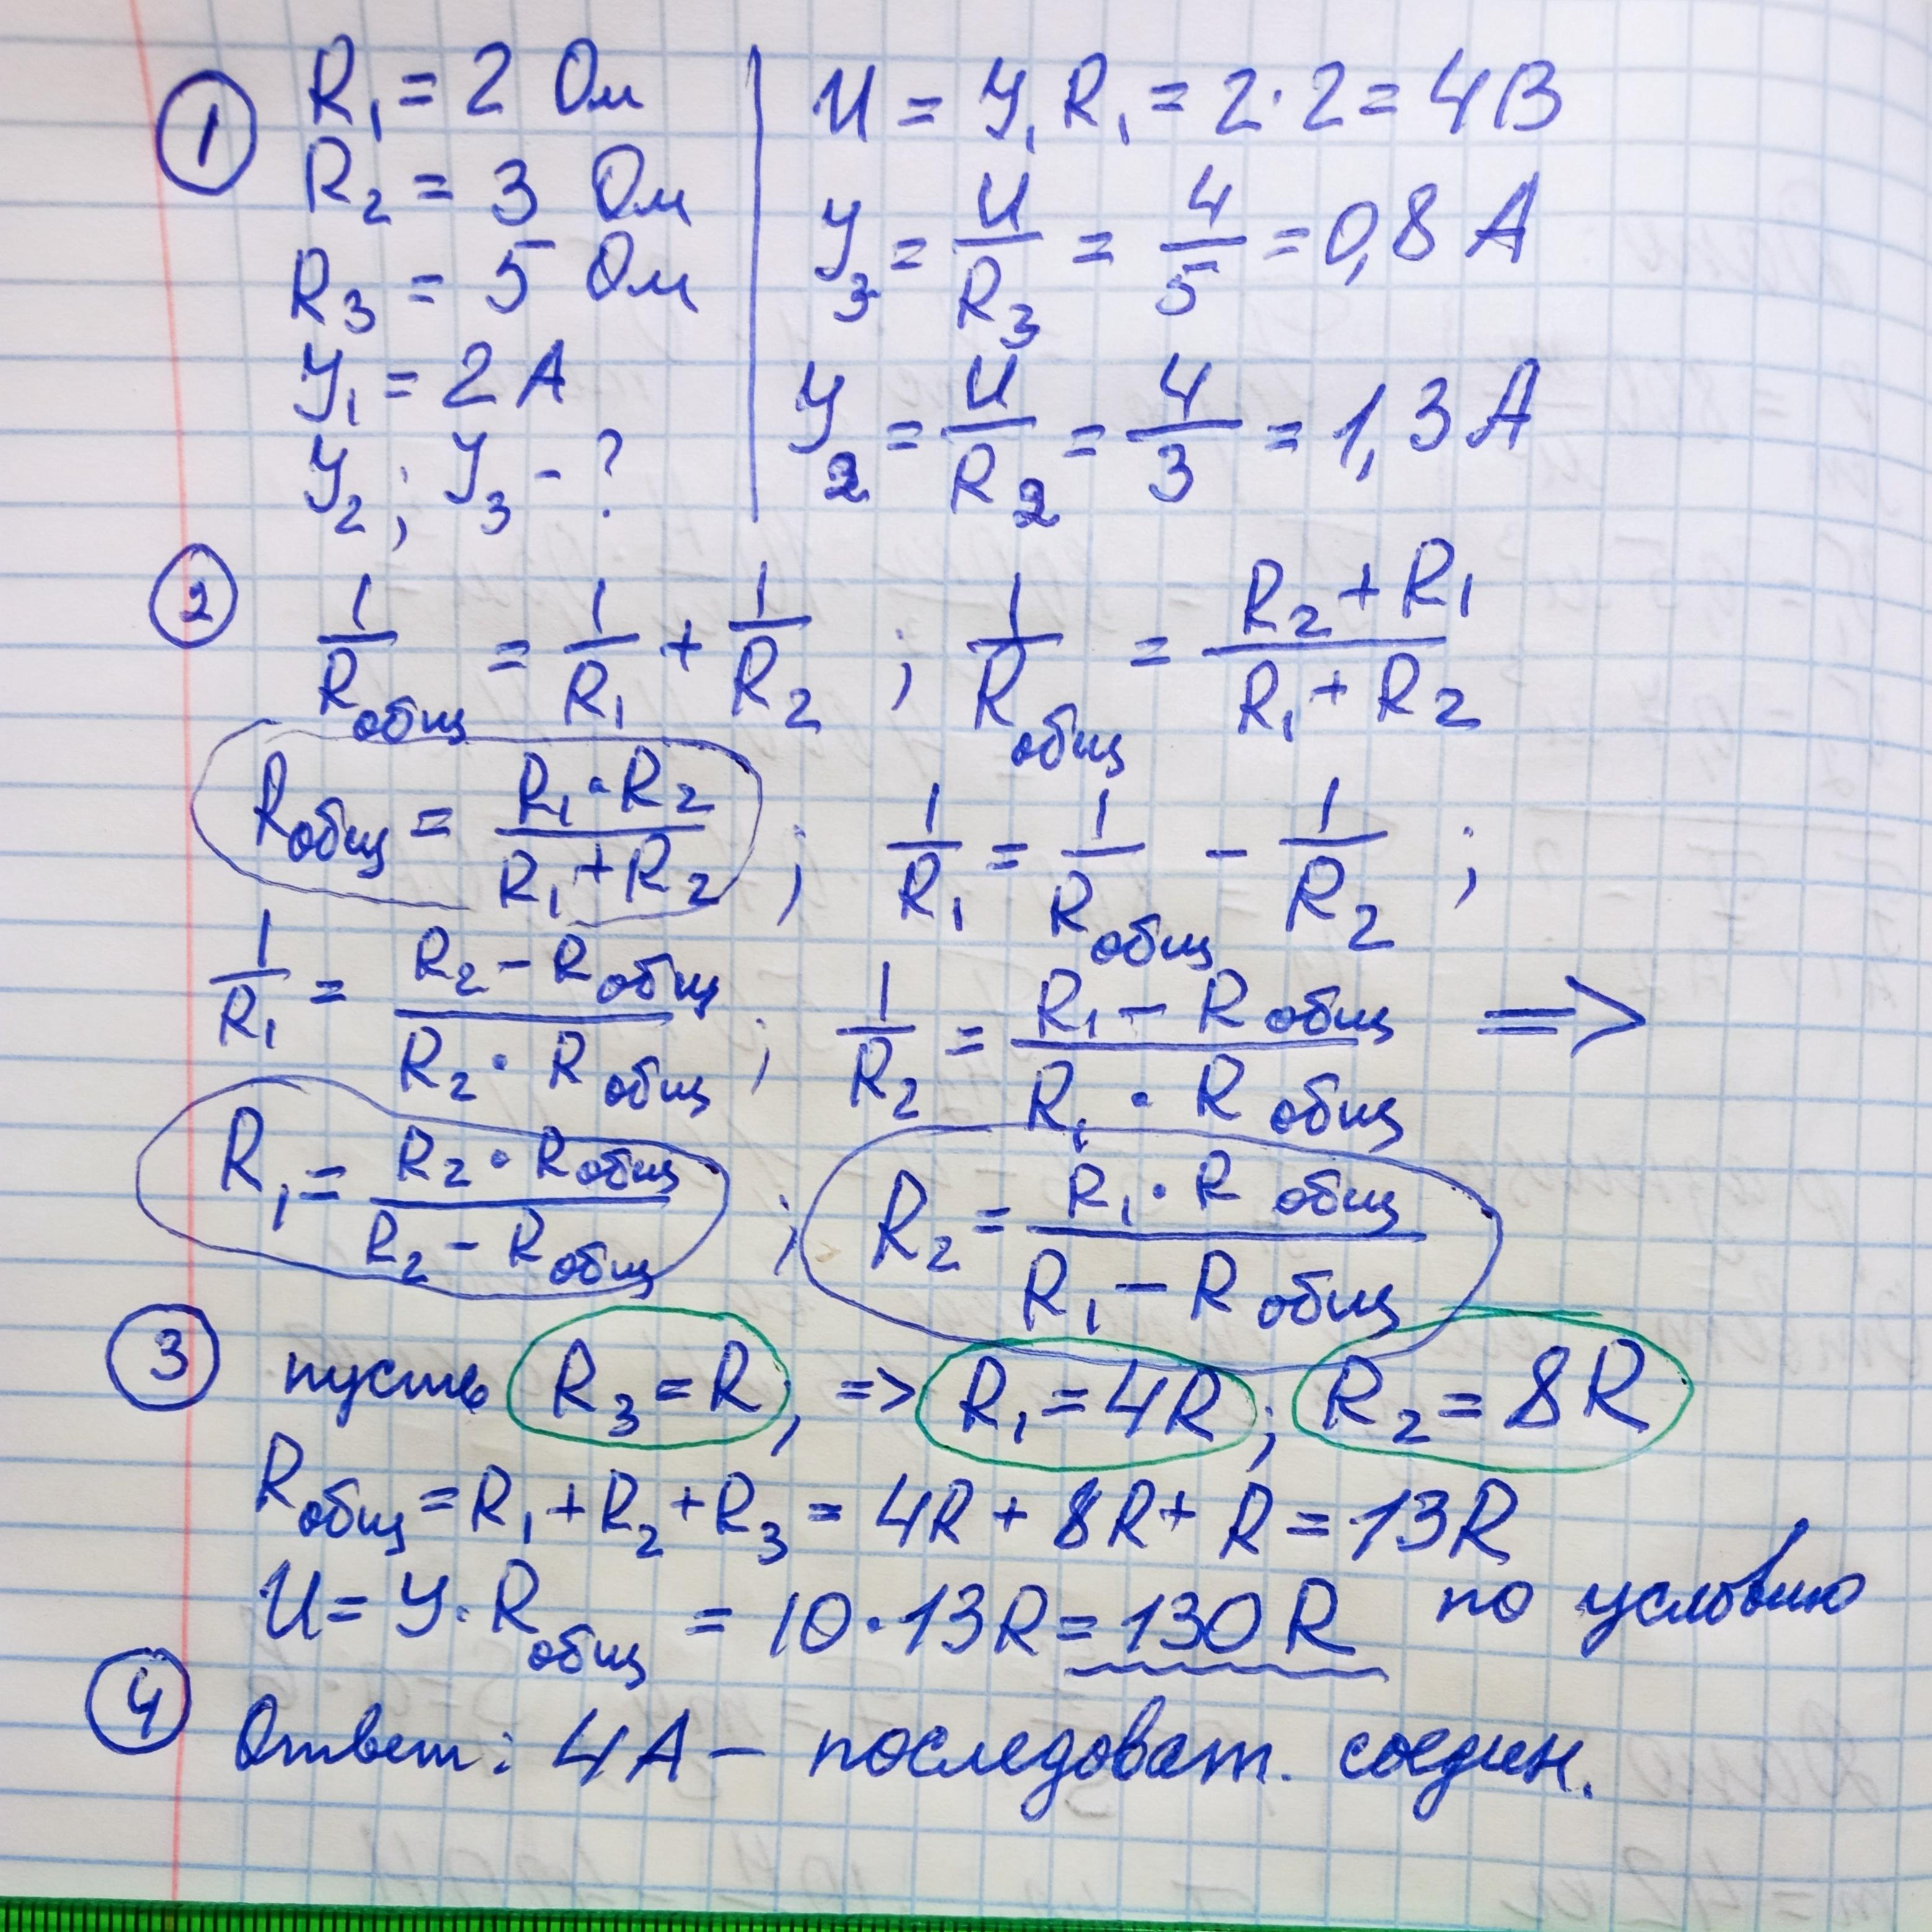 ① R₁ = 2 Ом | U = У₁R₁ = 2·2 = 4В
R₂ = 3 Ом
R₃ = 5 Ом | У₃ = U/R₃ = 4/5 = 0,8 А
У₁ = 2 А
У₂; У₃ - ? | У₂ = U/R₂ = 4/3 = 1,3 А
② 1/Rобщ = 1/R₁ + 1/R₂ ; 1/Rобщ = (R₂+R₁)/(R₁+R₂)
Rобщ = (R₁·R₂)/(R₁+R₂) ; 1/R₁ = 1/Rобщ - 1/R₂ ;
1/R₁ = (R₂ - Rобщ)/(R₂ · Rобщ) ; 1/R₂ = (R₁ - Rобщ)/(R₁ · Rобщ) =>
R₁ = (R₂ · Rобщ)/(R₂ - Rобщ) ; R₂ = (R₁ · Rобщ)/(R₁ - Rобщ)
③ пусть R₃ = R, => R₁ = 4R; R₂ = 8R
Rобщ = R₁ + R₂ + R₃ = 4R + 8R + R = 13R
U = У·Rобщ = 10·13R = 130R по условию
④ Ответ: 4А – последоват. соедин.